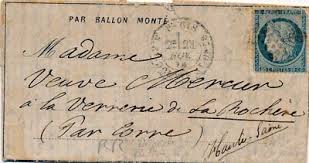 PAR BALLON MONTÉ
PARIS
Madame
Veuve Mercur
à la Verrerie de La Rochère
(Par Corre)
Haute Saône